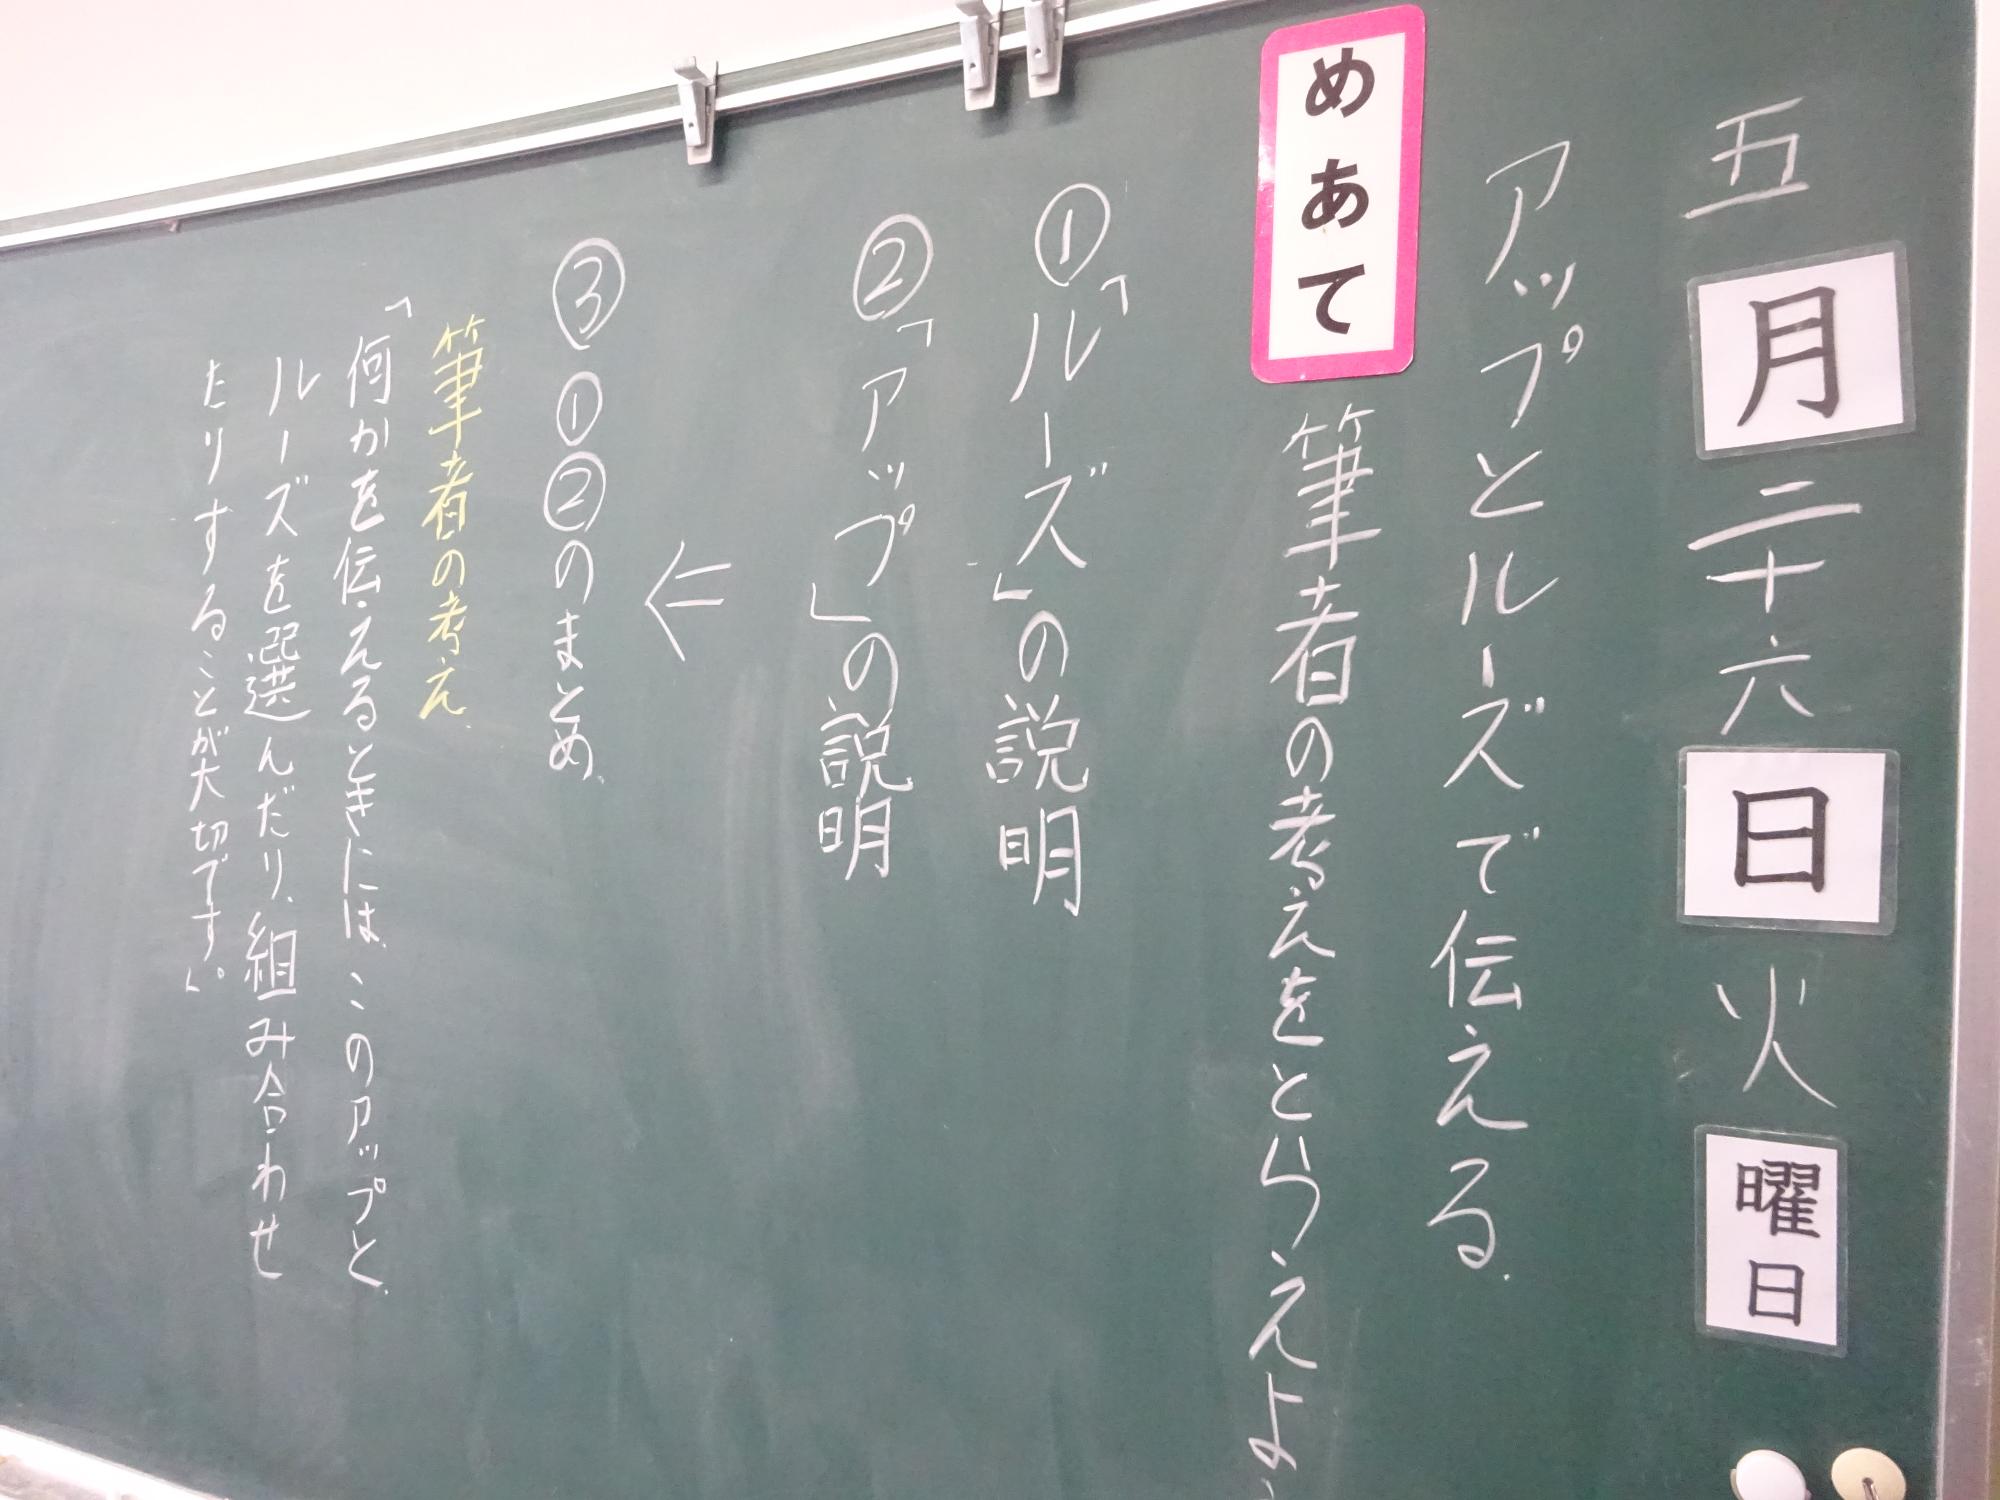 五月二十六日火曜日
アップとルーズで伝える
めあて 筆者の考えをとらえよう
①「ルーズ」の説明
②「アップ」の説明
③①②のまとめ
筆者の考え
「何かを伝えるときには、このアップと
ルーズを選んだり、組み合わせ
たりすることが大切です」。